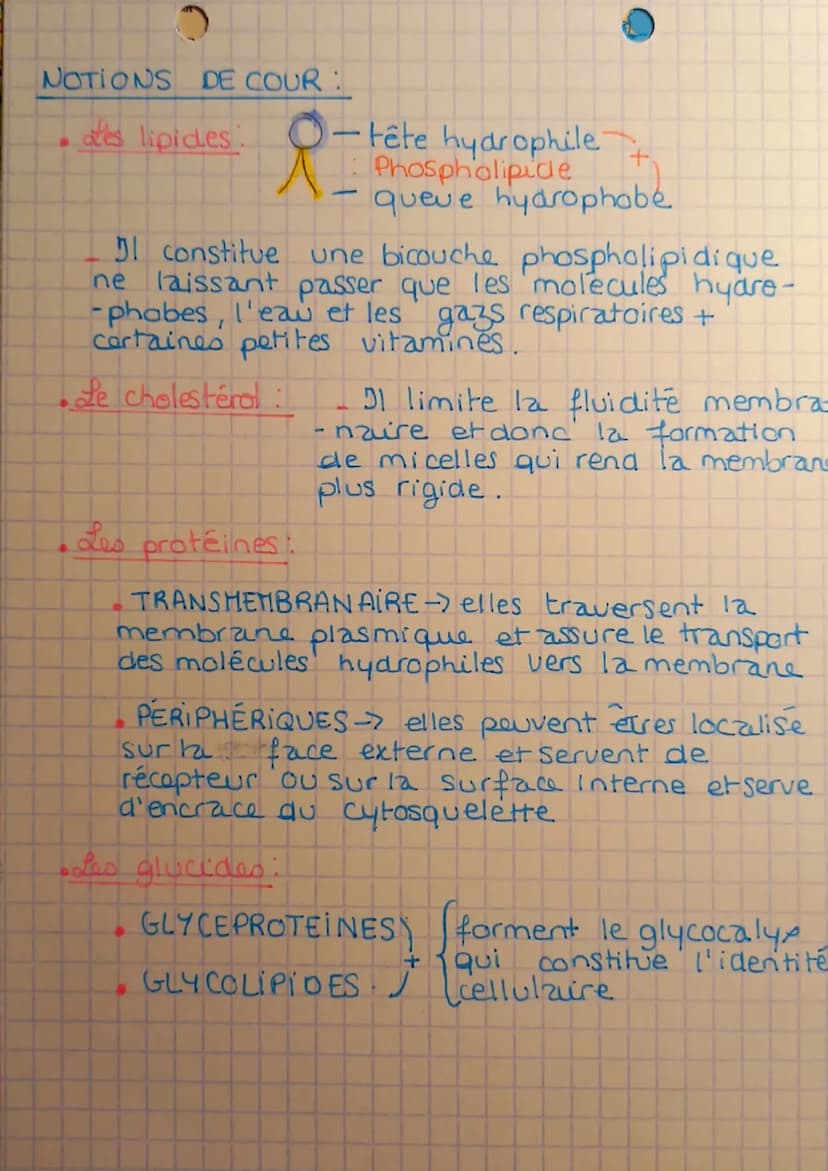 NOTIONS DE COUR :
• Les lipides :
— tête hydrophile
+
: Phospholipide
— queue hydrophobe
- Il constitue une bicouche phospholipidique
ne laissant passer que les molécules hydro-
-phobes, l'eau et les gazs respiratoires +
certaines petites vitamines.
• Le cholestérol : - Il limite la fluidité membra-
-naire et donc la formation
de micelles qui rend la membrane
plus rigide.
• Les protéines :
• TRANSMEMBRANAIRE → elles traversent la
membrane plasmique et assure le transport
des molécules hydrophiles vers la membrane
• PÉRIPHÉRIQUES → elles peuvent êtres localisé
sur la face externe et servent de
récepteur ou sur la surface interne et serve
d'encrace du cytosquelette
• Les glucides :
• GLYCEPROTEÏNES } { forment le glycocalyx
+ { qui constitue l'identité
• GLYCOLIPIDES. } { cellulaire